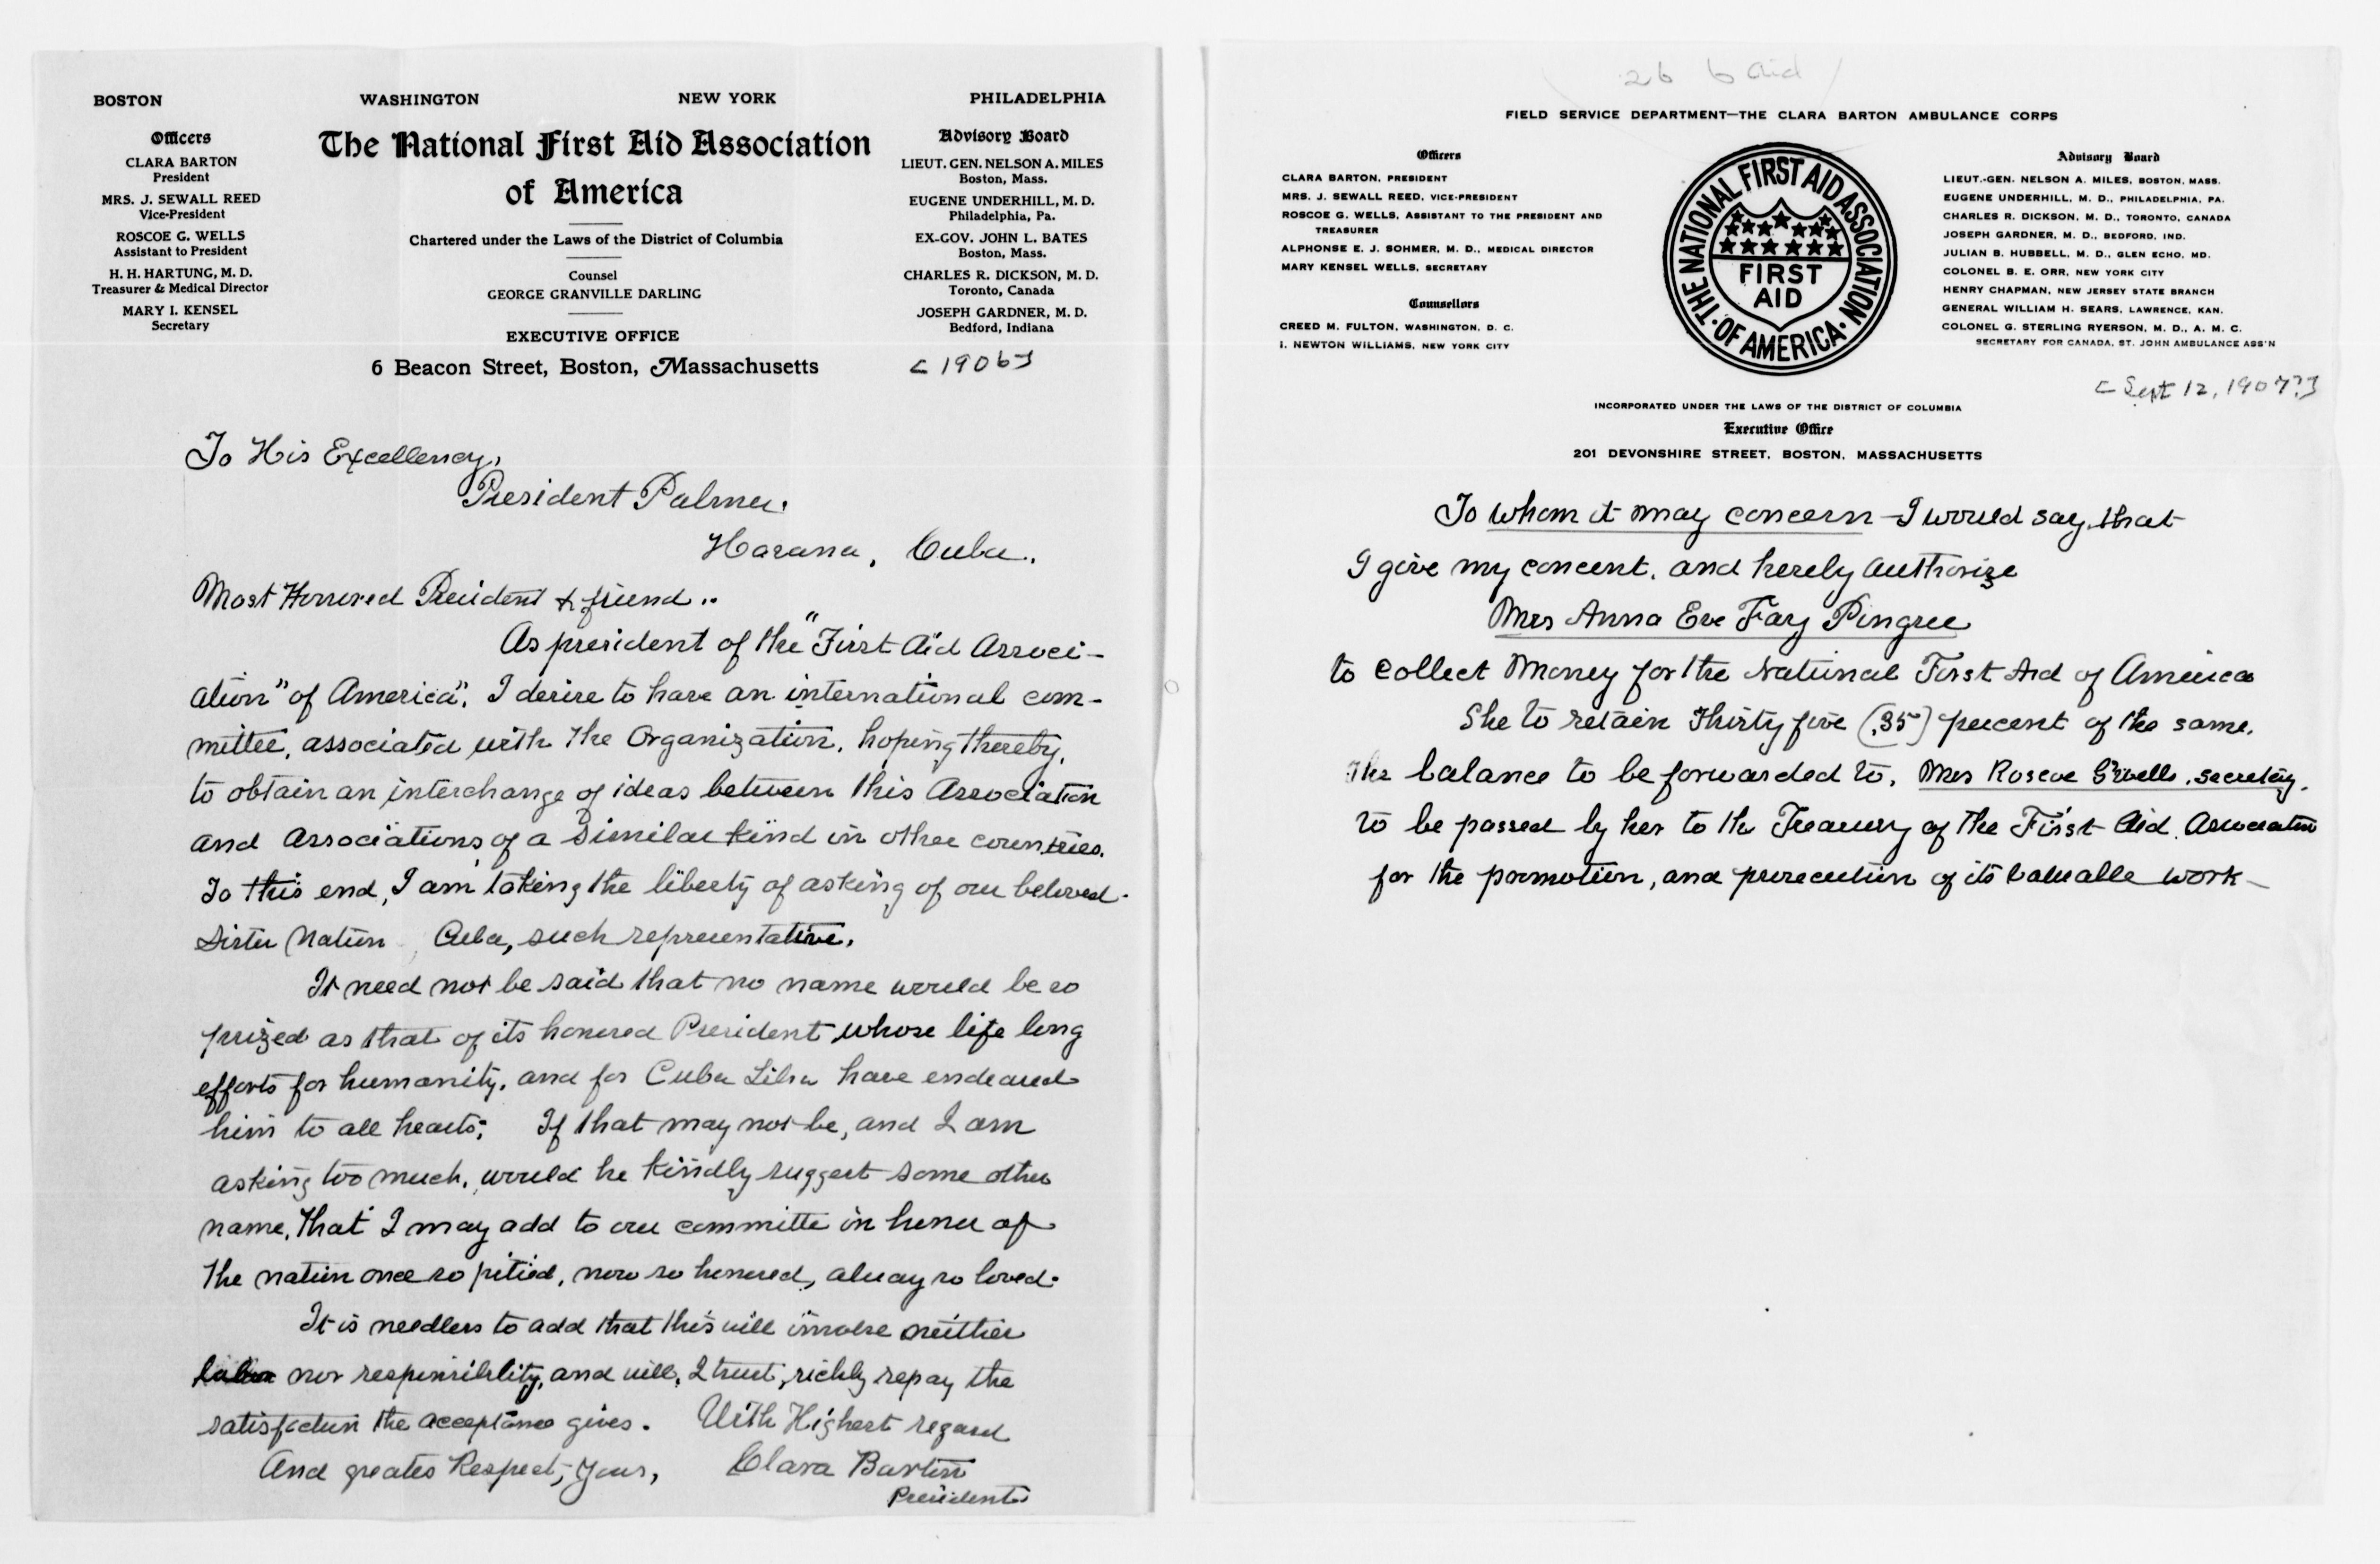 BOSTON WASHINGTON NEW YORK PHILADELPHIA
Officers
CLARA BARTON
President
MRS. J. SEWALL REED
Vice-President
ROSCOE G. WELLS
Assistant to President
H. H. HARTUNG, M. D.
Treasurer & Medical Director
MARY I. KENSEL
Secretary
The National First Aid Association
of America
Chartered under the Laws of the District of Columbia
Counsel
GEORGE GRANVILLE DARLING
EXECUTIVE OFFICE
6 Beacon Street, Boston, Massachusetts
Advisory Board
LIEUT. GEN. NELSON A. MILES
Boston, Mass.
EUGENE UNDERHILL, M. D.
Philadelphia, Pa.
EX-GOV. JOHN L. BATES
Boston, Mass.
CHARLES R. DICKSON, M. D.
Toronto, Canada
JOSEPH GARDNER, M. D.
Bedford, Indiana
[1906]
To His Excellency,
President Palmer.
Havana, Cuba.
Most Honored President & friend..
As president of the "First Aid Associ-
ation" of America", I desire to have an international com-
mittee, associated with the Organization, hoping thereby,
to obtain an interchange of ideas between this Association
and associations of a similar kind in other countries.
To this end, I am taking the liberty of asking of our beloved
Sister Nation Cuba, such representative.
It need not be said that no name would be so
prized as that of its honored President whose life long
efforts for humanity, and for Cuba Libra have endeared
him to all hearts; If that may not be, and I am
asking too much, would he kindly suggest some other
name, that I may add to our committe in honor of
the nation once so pitied, now so honored, alway so loved.
It is needless to add that this will involve neither
labor nor responsibility, and will, I trust, richly repay the
satisfaction the acceptance gives. With Highest regard
And greates Respect, Yours, Clara Barton
President
26 6 Aid
FIELD SERVICE DEPARTMENT—THE CLARA BARTON AMBULANCE CORPS
Officers
CLARA BARTON, PRESIDENT
MRS. J. SEWALL REED, VICE-PRESIDENT
ROSCOE G. WELLS, ASSISTANT TO THE PRESIDENT AND
TREASURER
ALPHONSE E. J. SOHMER, M. D., MEDICAL DIRECTOR
MARY KENSEL WELLS, SECRETARY
Counsellors
CREED M. FULTON, WASHINGTON, D. C.
I. NEWTON WILLIAMS, NEW YORK CITY
THE NATIONAL FIRST AID ASSOCIATION
OF AMERICA
FIRST
AID
Advisory Board
LIEUT.-GEN. NELSON A. MILES, BOSTON, MASS.
EUGENE UNDERHILL, M. D., PHILADELPHIA, PA.
CHARLES R. DICKSON, M. D., TORONTO, CANADA
JOSEPH GARDNER, M. D., BEDFORD, IND.
JULIAN B. HUBBELL, M. D., GLEN ECHO, MD.
COLONEL B. E. ORR, NEW YORK CITY
HENRY CHAPMAN, NEW JERSEY STATE BRANCH
GENERAL WILLIAM H. SEARS, LAWRENCE, KAN.
COLONEL G. STERLING RYERSON, M. D., A. M. C.
SECRETARY FOR CANADA, ST. JOHN AMBULANCE ASS'N
[Sept 12, 1907?]
INCORPORATED UNDER THE LAWS OF THE DISTRICT OF COLUMBIA
Executive Office
201 DEVONSHIRE STREET, BOSTON, MASSACHUSETTS
To whom it may concern — I would say, that
I give my concent, and herely authorize
Mrs Anna Eve Fay Pingree
to collect Money for the National First Aid of America
She to retain Thirty five (.35) percent of the same.
The balance to be forwarded to, Mrs Roscoe G Wells, secretary.
to be passed by her to the Treasury of the First Aid Association
for the promotion, and prosecution of its valuable work—